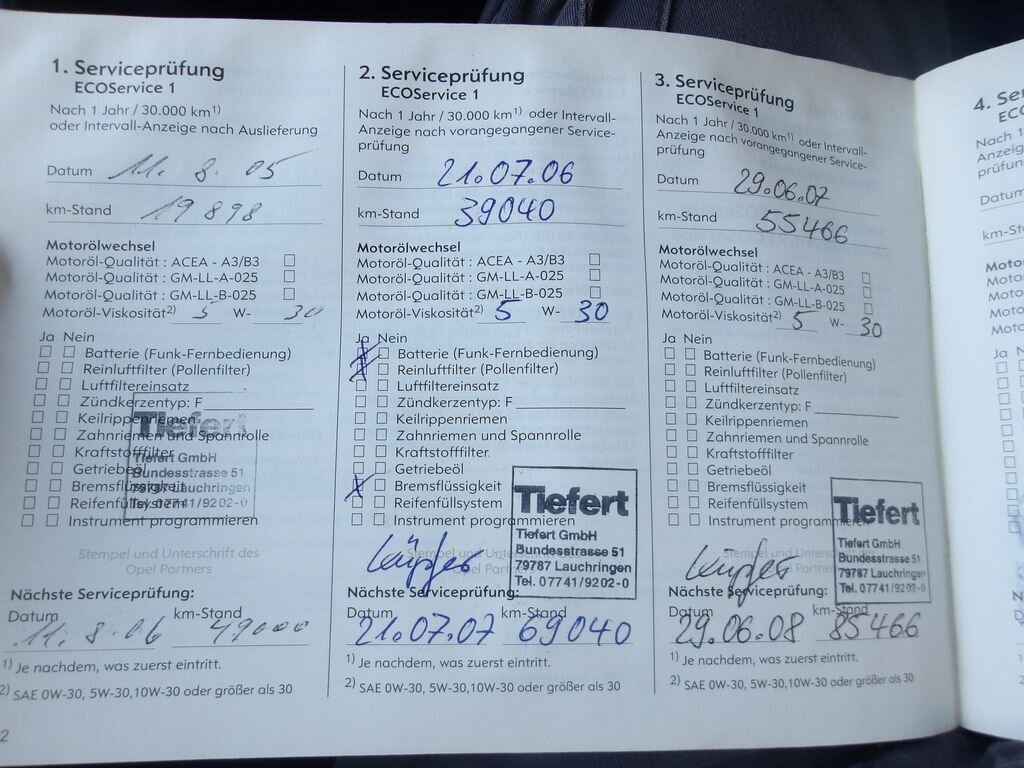 1. Serviceprüfung
ECOService 1
Nach 1 Jahr / 30.000 km1) oder Intervall-Anzeige nach Auslieferung
Datum 11. 8. 05
km-Stand 19898
Motorölwechsel
Motoröl-Qualität : ACEA - A3/B3 ☐
Motoröl-Qualität : GM-LL-A-025 ☐
Motoröl-Qualität : GM-LL-B-025 ☐
Motoröl-Viskosität2) 5 W- 30
Ja Nein
☐ ☐ Batterie (Funk-Fernbedienung)
☐ ☐ Reinluftfilter (Pollenfilter)
☐ ☐ Luftfiltereinsatz
☐ ☐ Zündkerzentyp: F
☐ ☐ Keilrippenriemen
☐ ☐ Zahnriemen und Spannrolle
☐ ☐ Kraftstofffilter
☐ ☐ Getriebeöl
☐ ☐ Bremsflüssigkeit
☐ ☐ Reifenfüllsystem
☐ ☐ Instrument programmieren
Tiefert
Tiefert GmbH
Bundesstrasse 51
79787 Lauchringen
Tel. 07741/9202-0
Stempel und Unterschrift des
Opel Partners
Nächste Serviceprüfung:
Datum km-Stand
11. 8. 06 49000
1) Je nachdem, was zuerst eintritt.
2) SAE 0W-30, 5W-30,10W-30 oder größer als 30
2
2. Serviceprüfung
ECOService 1
Nach 1 Jahr / 30.000 km1) oder Intervall-
Anzeige nach vorangegangener Service-
prüfung
Datum 21.07.06
km-Stand 39040
Motorölwechsel
Motoröl-Qualität : ACEA - A3/B3 ☐
Motoröl-Qualität : GM-LL-A-025 ☐
Motoröl-Qualität : GM-LL-B-025 ☐
Motoröl-Viskosität2) 5 W- 30
Ja Nein
☒ ☐ Batterie (Funk-Fernbedienung)
☒ ☐ Reinluftfilter (Pollenfilter)
☐ ☐ Luftfiltereinsatz
☐ ☐ Zündkerzentyp: F
☐ ☐ Keilrippenriemen
☐ ☐ Zahnriemen und Spannrolle
☐ ☐ Kraftstofffilter
☐ ☐ Getriebeöl
☒ ☐ Bremsflüssigkeit
☐ ☐ Reifenfüllsystem
☐ ☐ Instrument programmieren
Tiefert
Tiefert GmbH
Bundesstrasse 51
79787 Lauchringen
Tel. 07741/9202-0
Stempel und Unterschrift des
Opel Partners
Nächste Serviceprüfung:
Datum km-Stand
21.07.07 69040
1) Je nachdem, was zuerst eintritt.
2) SAE 0W-30, 5W-30,10W-30 oder größer als 30
3. Serviceprüfung
ECOService 1
Nach 1 Jahr / 30.000 km1) oder Intervall-
Anzeige nach vorangegangener Service-
prüfung
Datum 29.06.07
km-Stand 55466
Motorölwechsel
Motoröl-Qualität : ACEA - A3/B3 ☐
Motoröl-Qualität : GM-LL-A-025 ☐
Motoröl-Qualität : GM-LL-B-025 ☐
Motoröl-Viskosität2) 5 W- 30
Ja Nein
☐ ☐ Batterie (Funk-Fernbedienung)
☐ ☐ Reinluftfilter (Pollenfilter)
☐ ☐ Luftfiltereinsatz
☐ ☐ Zündkerzentyp: F
☐ ☐ Keilrippenriemen
☐ ☐ Zahnriemen und Spannrolle
☐ ☐ Kraftstofffilter
☐ ☐ Getriebeöl
☐ ☐ Bremsflüssigkeit
☐ ☐ Reifenfüllsystem
☐ ☐ Instrument programmieren
Tiefert
Tiefert GmbH
Bundesstrasse 51
79787 Lauchringen
Tel. 07741/9202-0
Nächste Serviceprüfung:
Datum km-Stand
29.06.08 85466
1) Je nachdem, was zuerst eintritt.
2) SAE 0W-30, 5W-30,10W-30 oder größer als 30
4. Ser
Nach 1
Anzeig
prüfun
Datum
km-St
Ja N